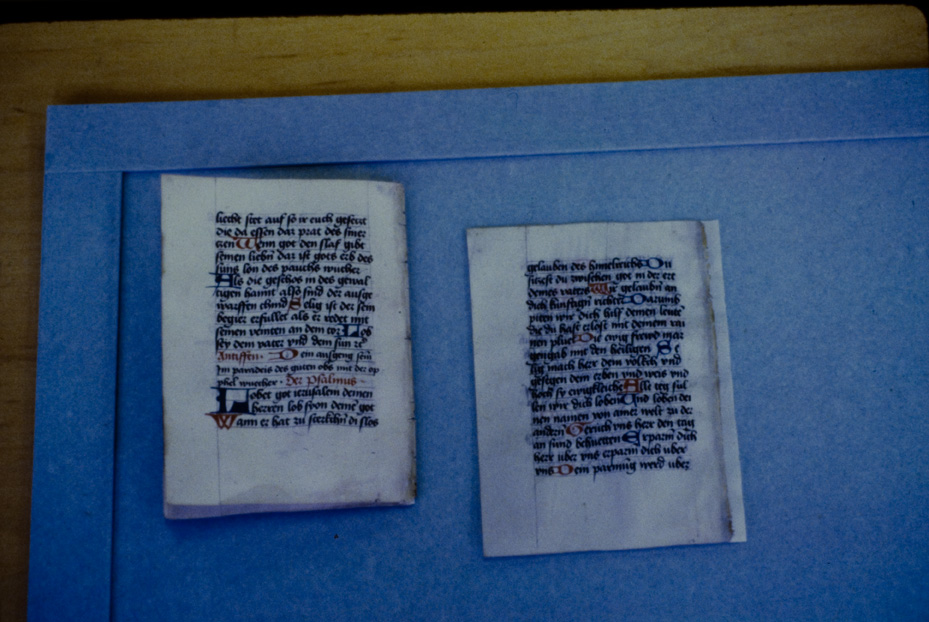 liecht stet auf so ir euch gesecet
die da essen dar prat des smer
czen Wenn got den slaf gibt
seinen liebn dar ist gots erb des
suns lon des pauchs wucher
Als die geschos in des gewal
tigen hannt also sind der ausge
warffen chind Selig ist der sein
begier erfullet als er redet mit
seinen veinten an dem tor Lob
sey dem vater vnd dem sun re
Antiffen Dem ausgeng sein
Im pardeis des guten obs mit der op
phel wuecher Der Psalmus
Lobet got ierusalem deinen
herren lob syon deine got
Wann er hat zu sterkchn di slos
gelauben des himelreichs Du
siczest du zwischen got in der ere
deines vaters Wir gelaubn an
dich kunftign richter Darumb
piten wir dich hilf deinen leute
die du hast erlost mit deinem rai
nen pluet Die ewig frewd mar
gengab mit den heiligen Se
lig mach herr dein volkch vnd
gesegen dein erben vnd weis vnd
hoch sy ewigkleiche Alle teg sul
len wir dich loben Und loben dei
nen namen von ainer welt zu der
andern Geruch vns herr den tag
an sund behuetten Erparm dich
herr vber vns erparm dich vber
vns Dein parmug werd vber